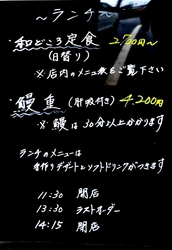 ～ランチ～
・和どころ定食 2,700円～
(日替り)
※店内のメニュー表をご覧下さい
・鰻重(肝吸付き) 4,200円
※鰻は30分以上かかります
ランチのメニューは
手作りデザートとソフトドリンクがつきます
11:30 開店
13:30 ラストオーダー
14:15 閉店